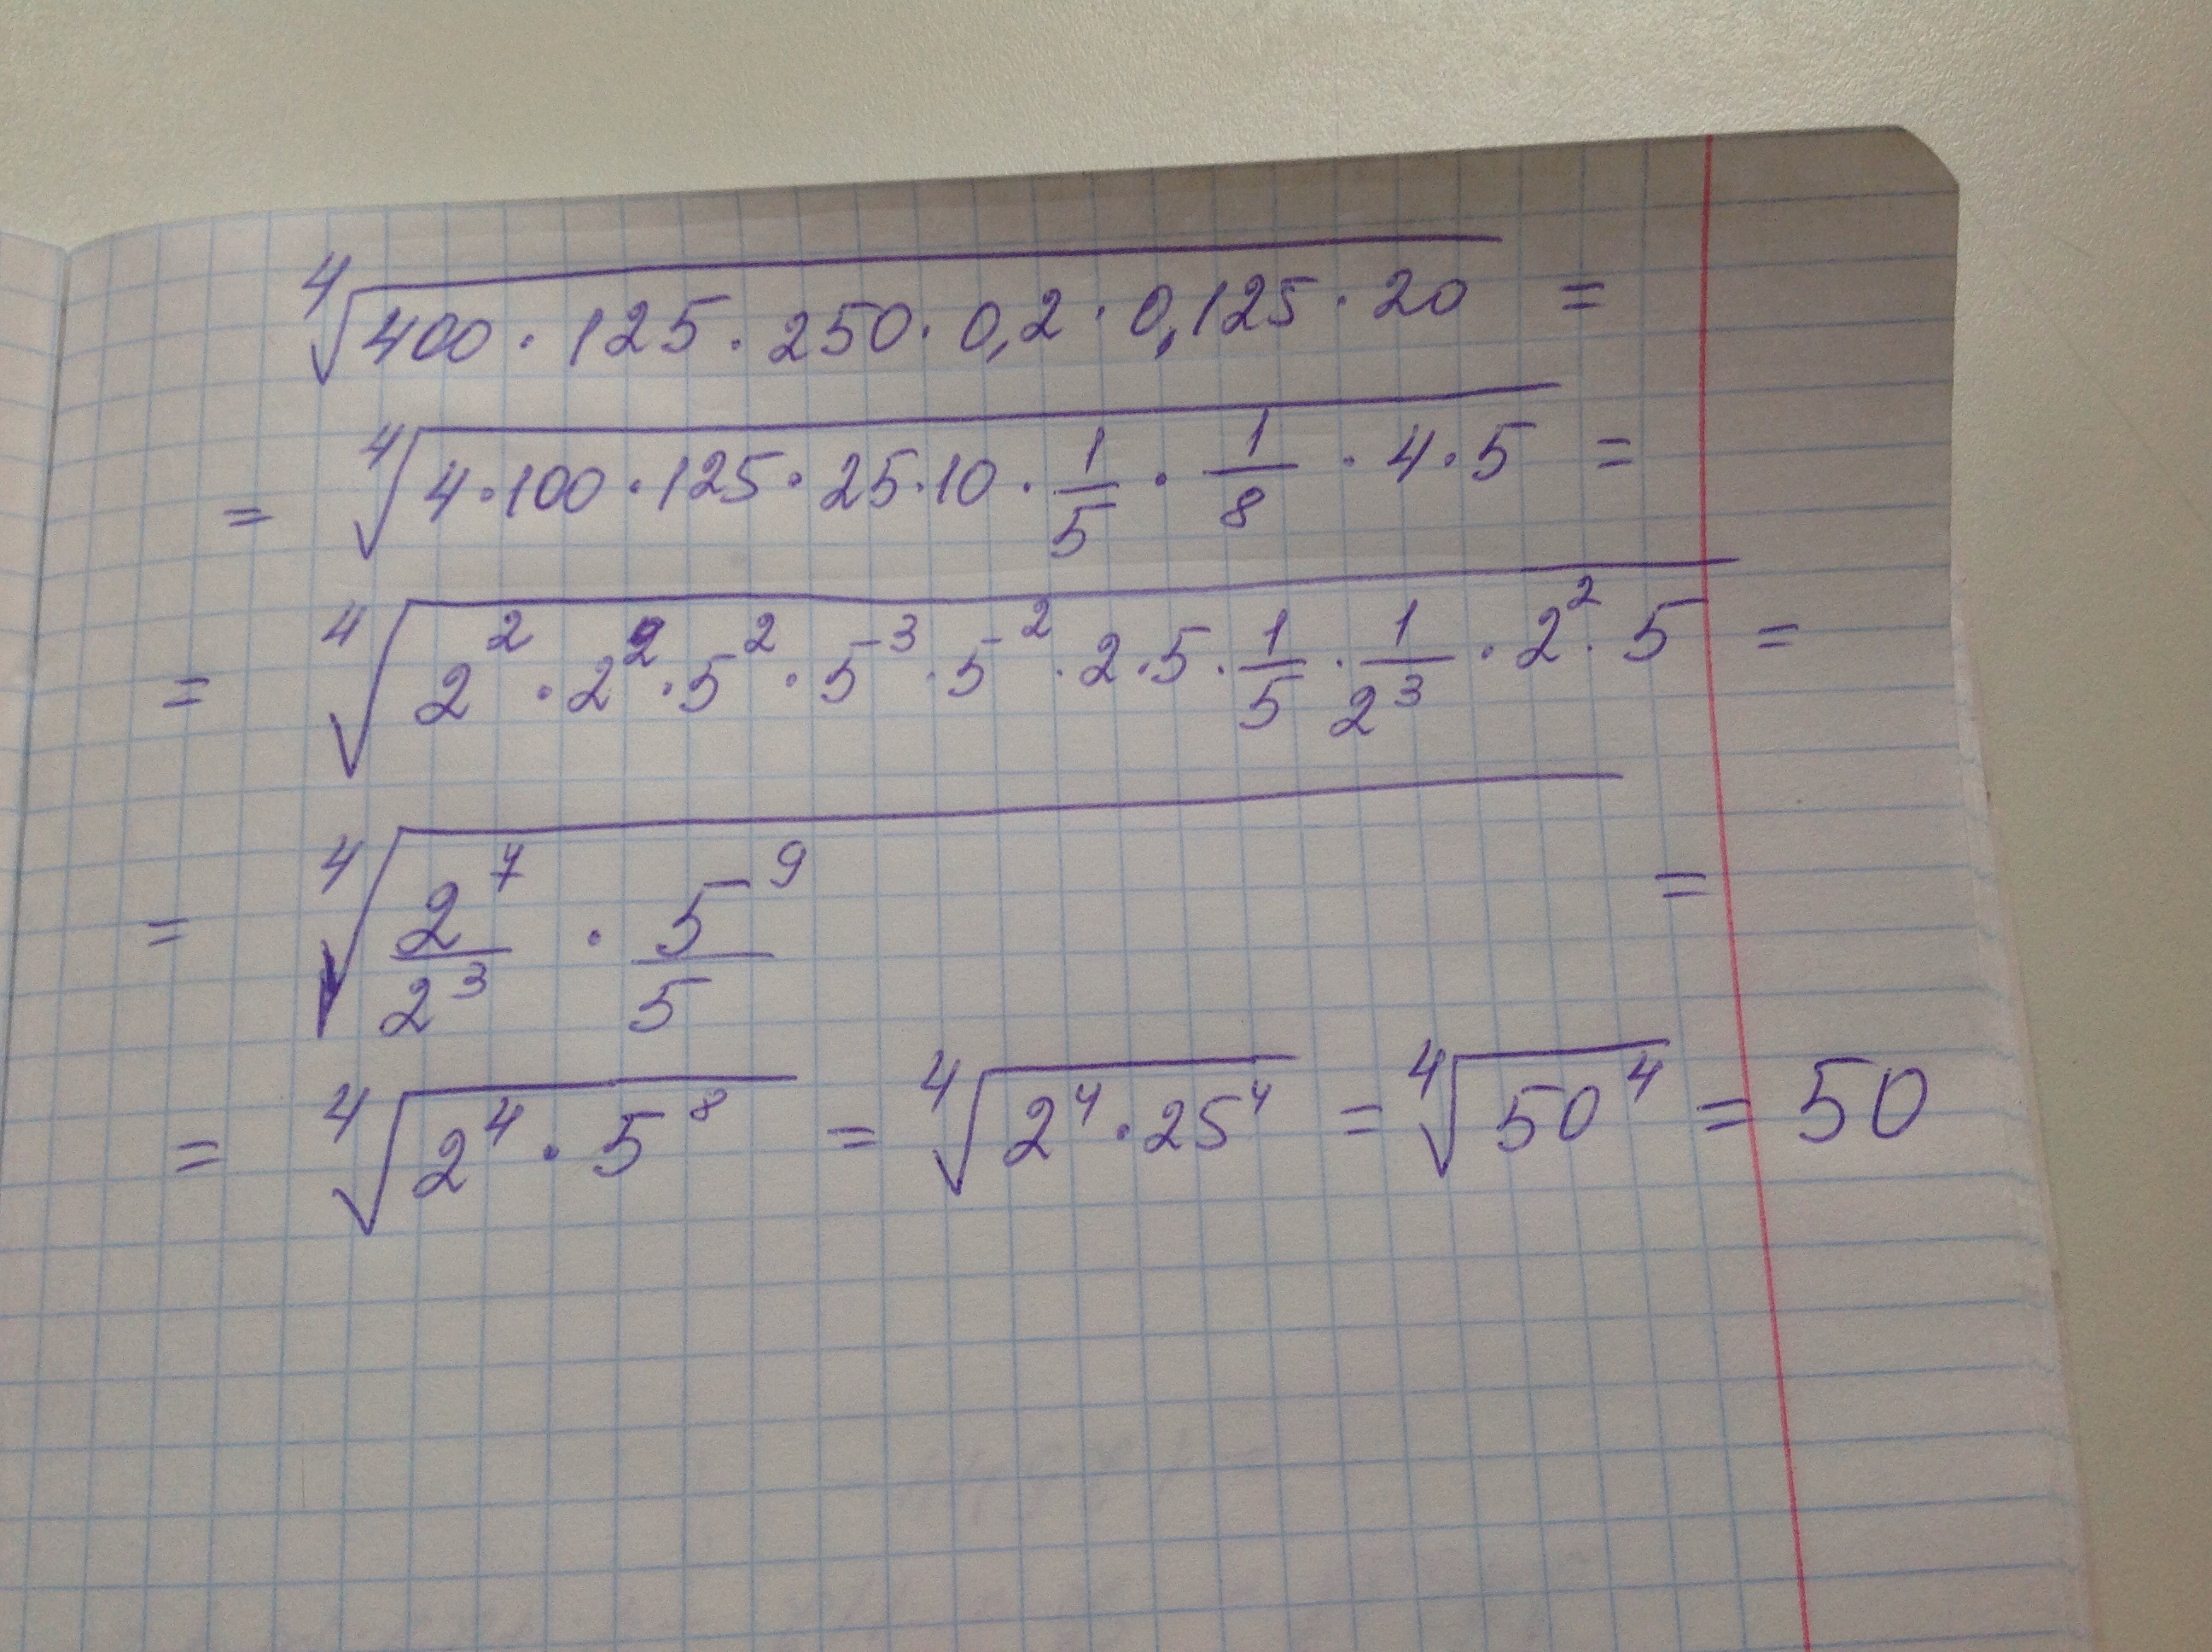 ⁴√(400 · 125 · 250 · 0,2 · 0,125 · 20) =
= ⁴√(4 · 100 · 125 · 25 · 10 · 1/5 · 1/8 · 4 · 5) =
= ⁴√(2² · 2² · 5² · 5³ · 5² · 2 · 5 · 1/5 · 1/2³ · 2² · 5) =
= ⁴√(2⁷/2³ · 5⁹/5) =
= ⁴√(2⁴ · 5⁸) = ⁴√(2⁴ · 25⁴) = ⁴√(50⁴) = 50